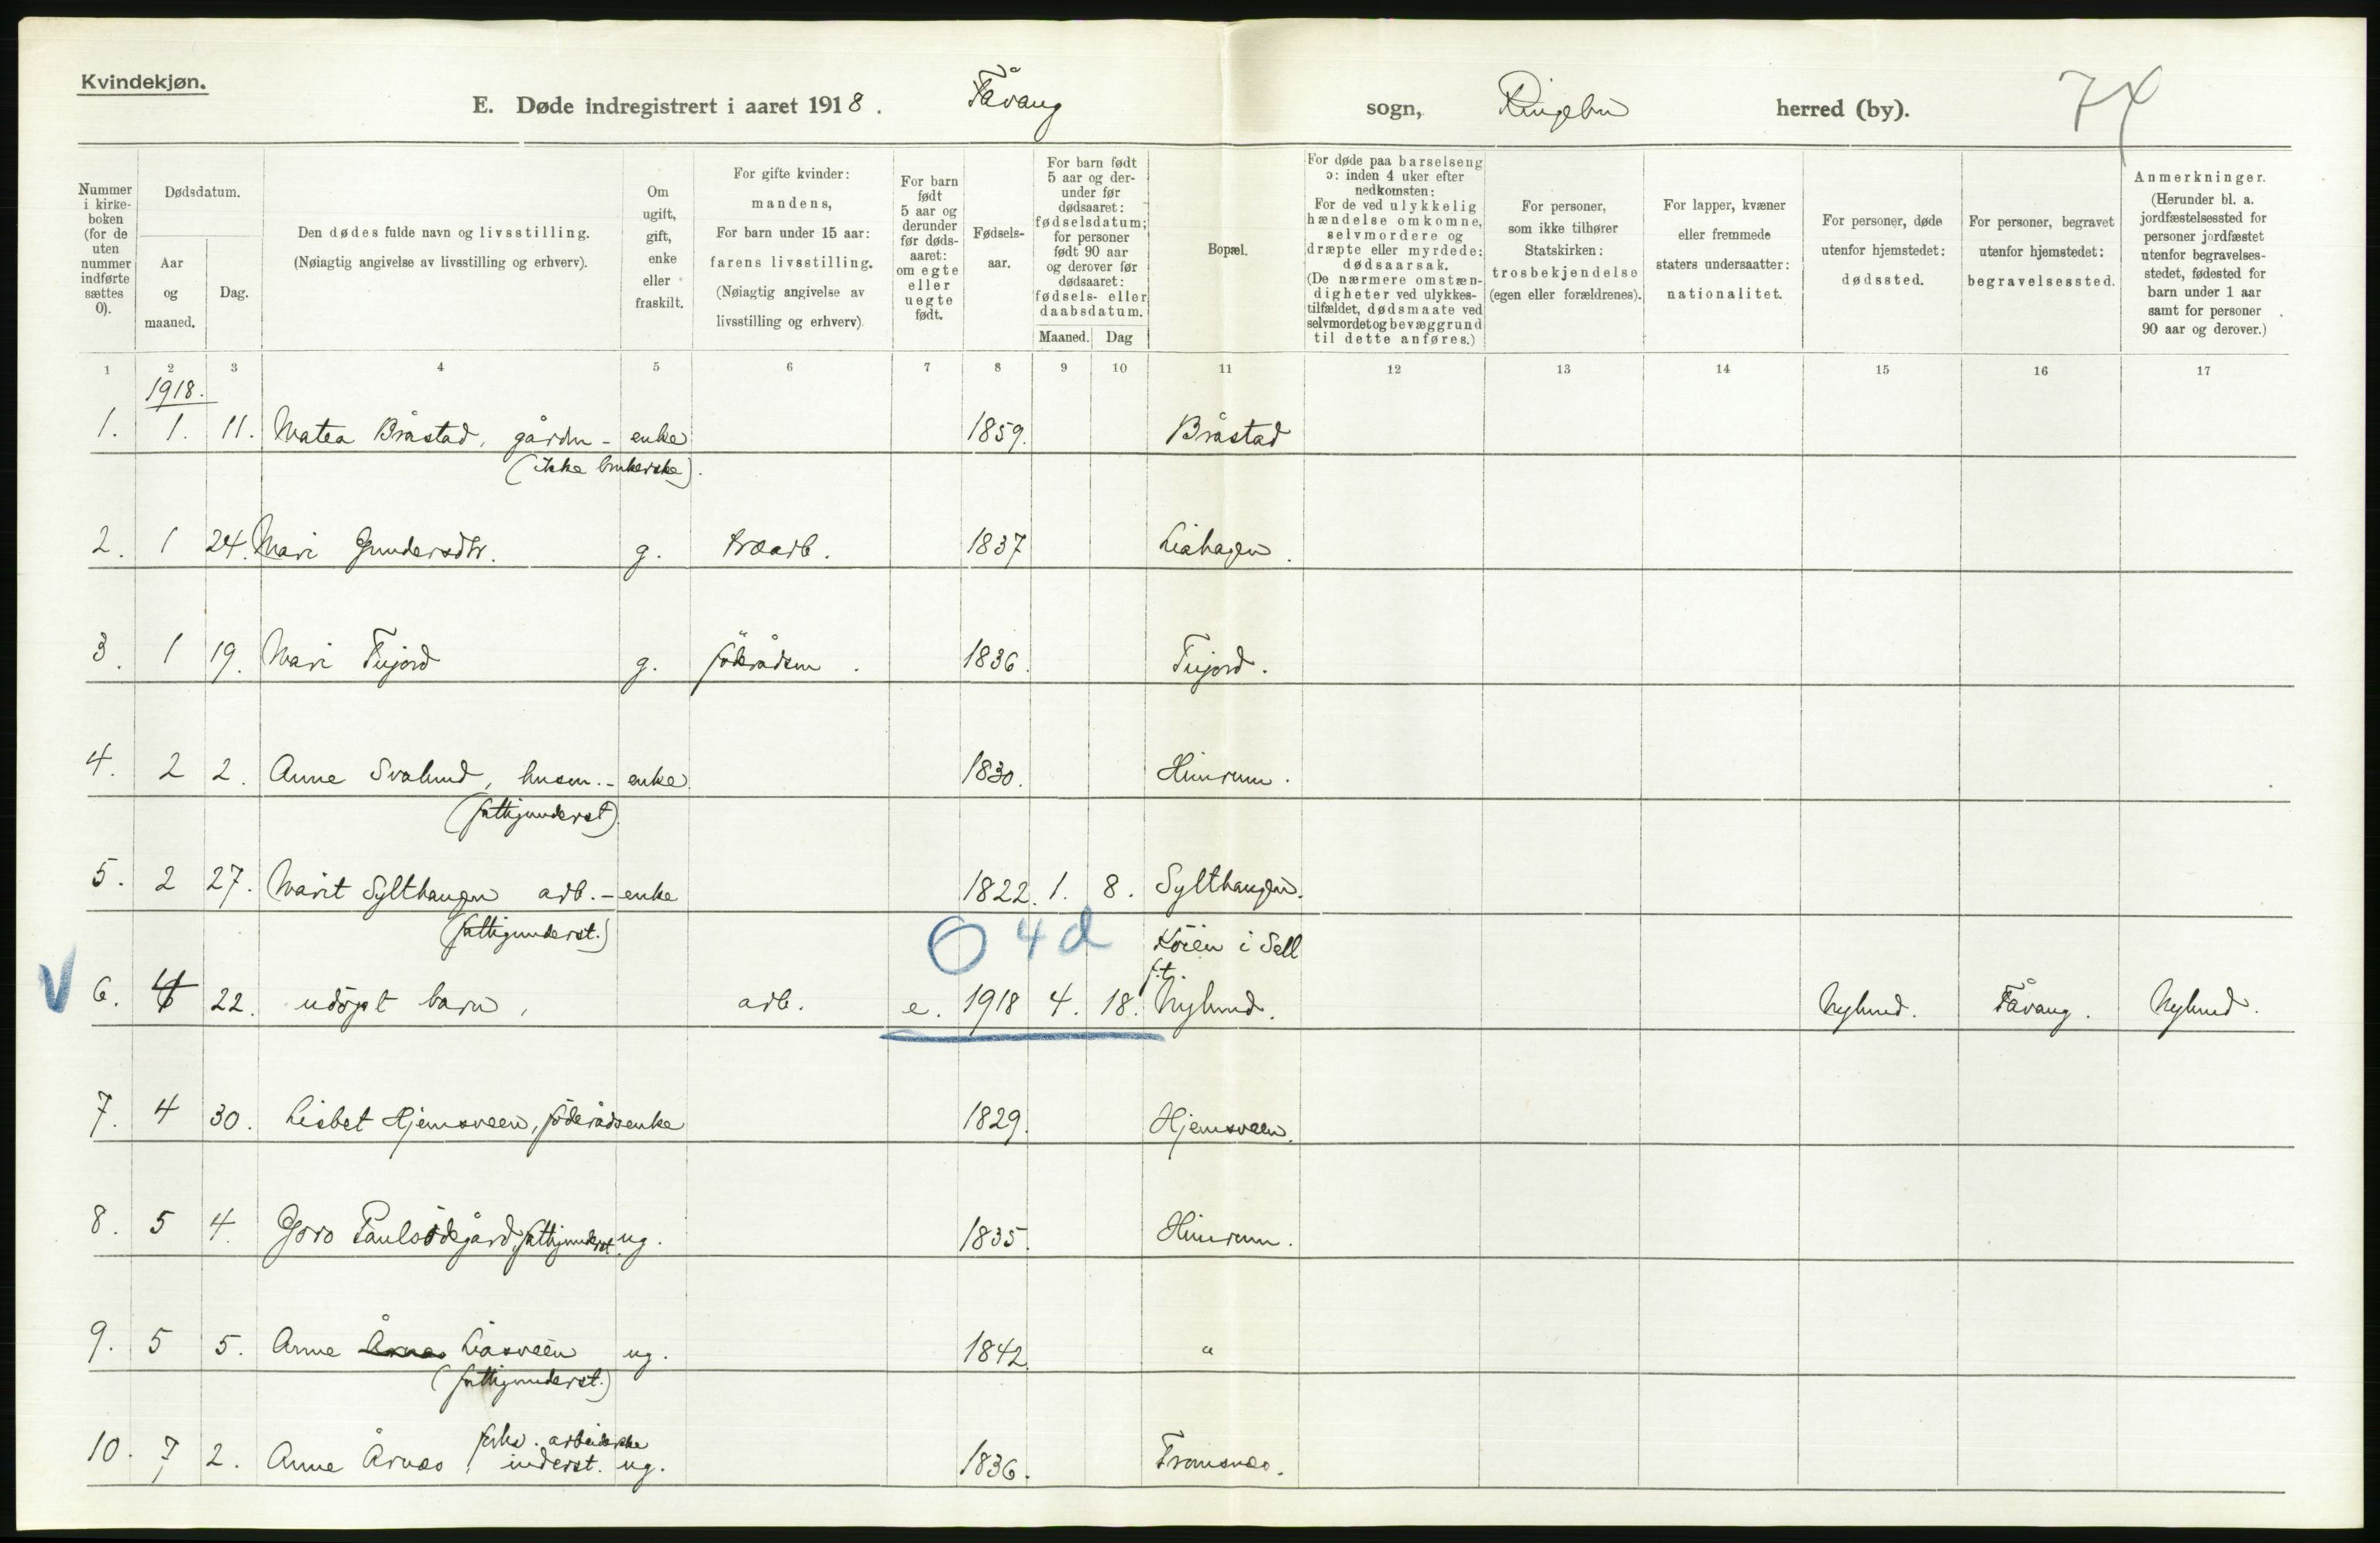 Kvindekjøn.
E. Døde indregistrert i aaret 1918. Fåvang sogn, Ringebu herred (by). 74
Nummer i kirkeboken (for de uten nummer indførte sættes 0).
Dødsdatum.
Aar og maaned.
Dag.
Den dødes fulde navn og livsstilling.
(Nøiagtig angivelse av livsstilling og erhverv).
Om ugift, gift, enke eller fraskilt.
For gifte kvinder: mandens,
For barn under 15 aar: farens livsstilling.
(Nøiagtig angivelse av livsstilling og erhverv).
For barn født 5 aar og derunder før dødsaaret: om egte eller uegte født.
Fødselsaar.
For barn født 5 aar og derunder før dødsaaret: fødselsdatum; for personer født 90 aar og derover før dødsaaret: fødsels- eller daabsdatum.
Maaned. Dag
Bopæl.
For døde paa barselseng ɔ: inden 4 uker efter nedkomsten:
For de ved ulykkelig hændelse omkomne, selvmordere og dræpte eller myrdede: dødsaarsak.
(De nærmere omstændigheter ved ulykkestilfældet, dødsmaate ved selvmordet og bevæggrund til dette anføres.)
For personer, som ikke tilhører Statskirken: trosbekjendelse (egen eller forældrenes).
For lapper, kvæner eller fremmede staters undersaatter: nationalitet.
For personer, døde utenfor hjemstedet: dødssted.
For personer, begravet utenfor hjemstedet: begravelsessted.
Anmerkninger.
(Herunder bl. a. jordfæstelsessted for personer jordfæstet utenfor begravelsesstedet, fødested for barn under 1 aar samt for personer 90 aar og derover.)
1 2 3 4 5 6 7 8 9 10 11 12 13 14 15 16 17
1918.
1. 1. 11. Matea Bråstad, gårdm- enke 1859. Bråstad
(ikke brukerske).
2. 1 24. Mari Gundersdtr. g. træarb. 1837 Liahagen.
3. 1 19. Mari Tujord g. föderådsm. 1836. Tujord.
4. 2 2. Anne Svalund, husm.- enke 1830. Himrum.
(fattigunderst).
5. 2 27. Marit Sylthaugen arb.- enke 1822. 1. 8. Sylthaugen.
(fattigunderst.)
O 4d Köien i Sell
f.t.
V 6. 4 22. udöpt barn, arb. e. 1918 4. 18. Nylund. Nylund. Fåvang. Nylund.
7. 4 30. Lisbet Hjemsveen, föderådsenke 1829. Hjemsveen.
8. 5 4. Goro Paulsödegård, fattigunderst. ug. 1835. Himrum.
9. 5 5. Anne Liasveen ug. 1842. "
(fattigunderst.)
10. 7 2. Anne Årnæs, forhv. arbeiderske
inderst. ug. 1836. Tromsnæs.